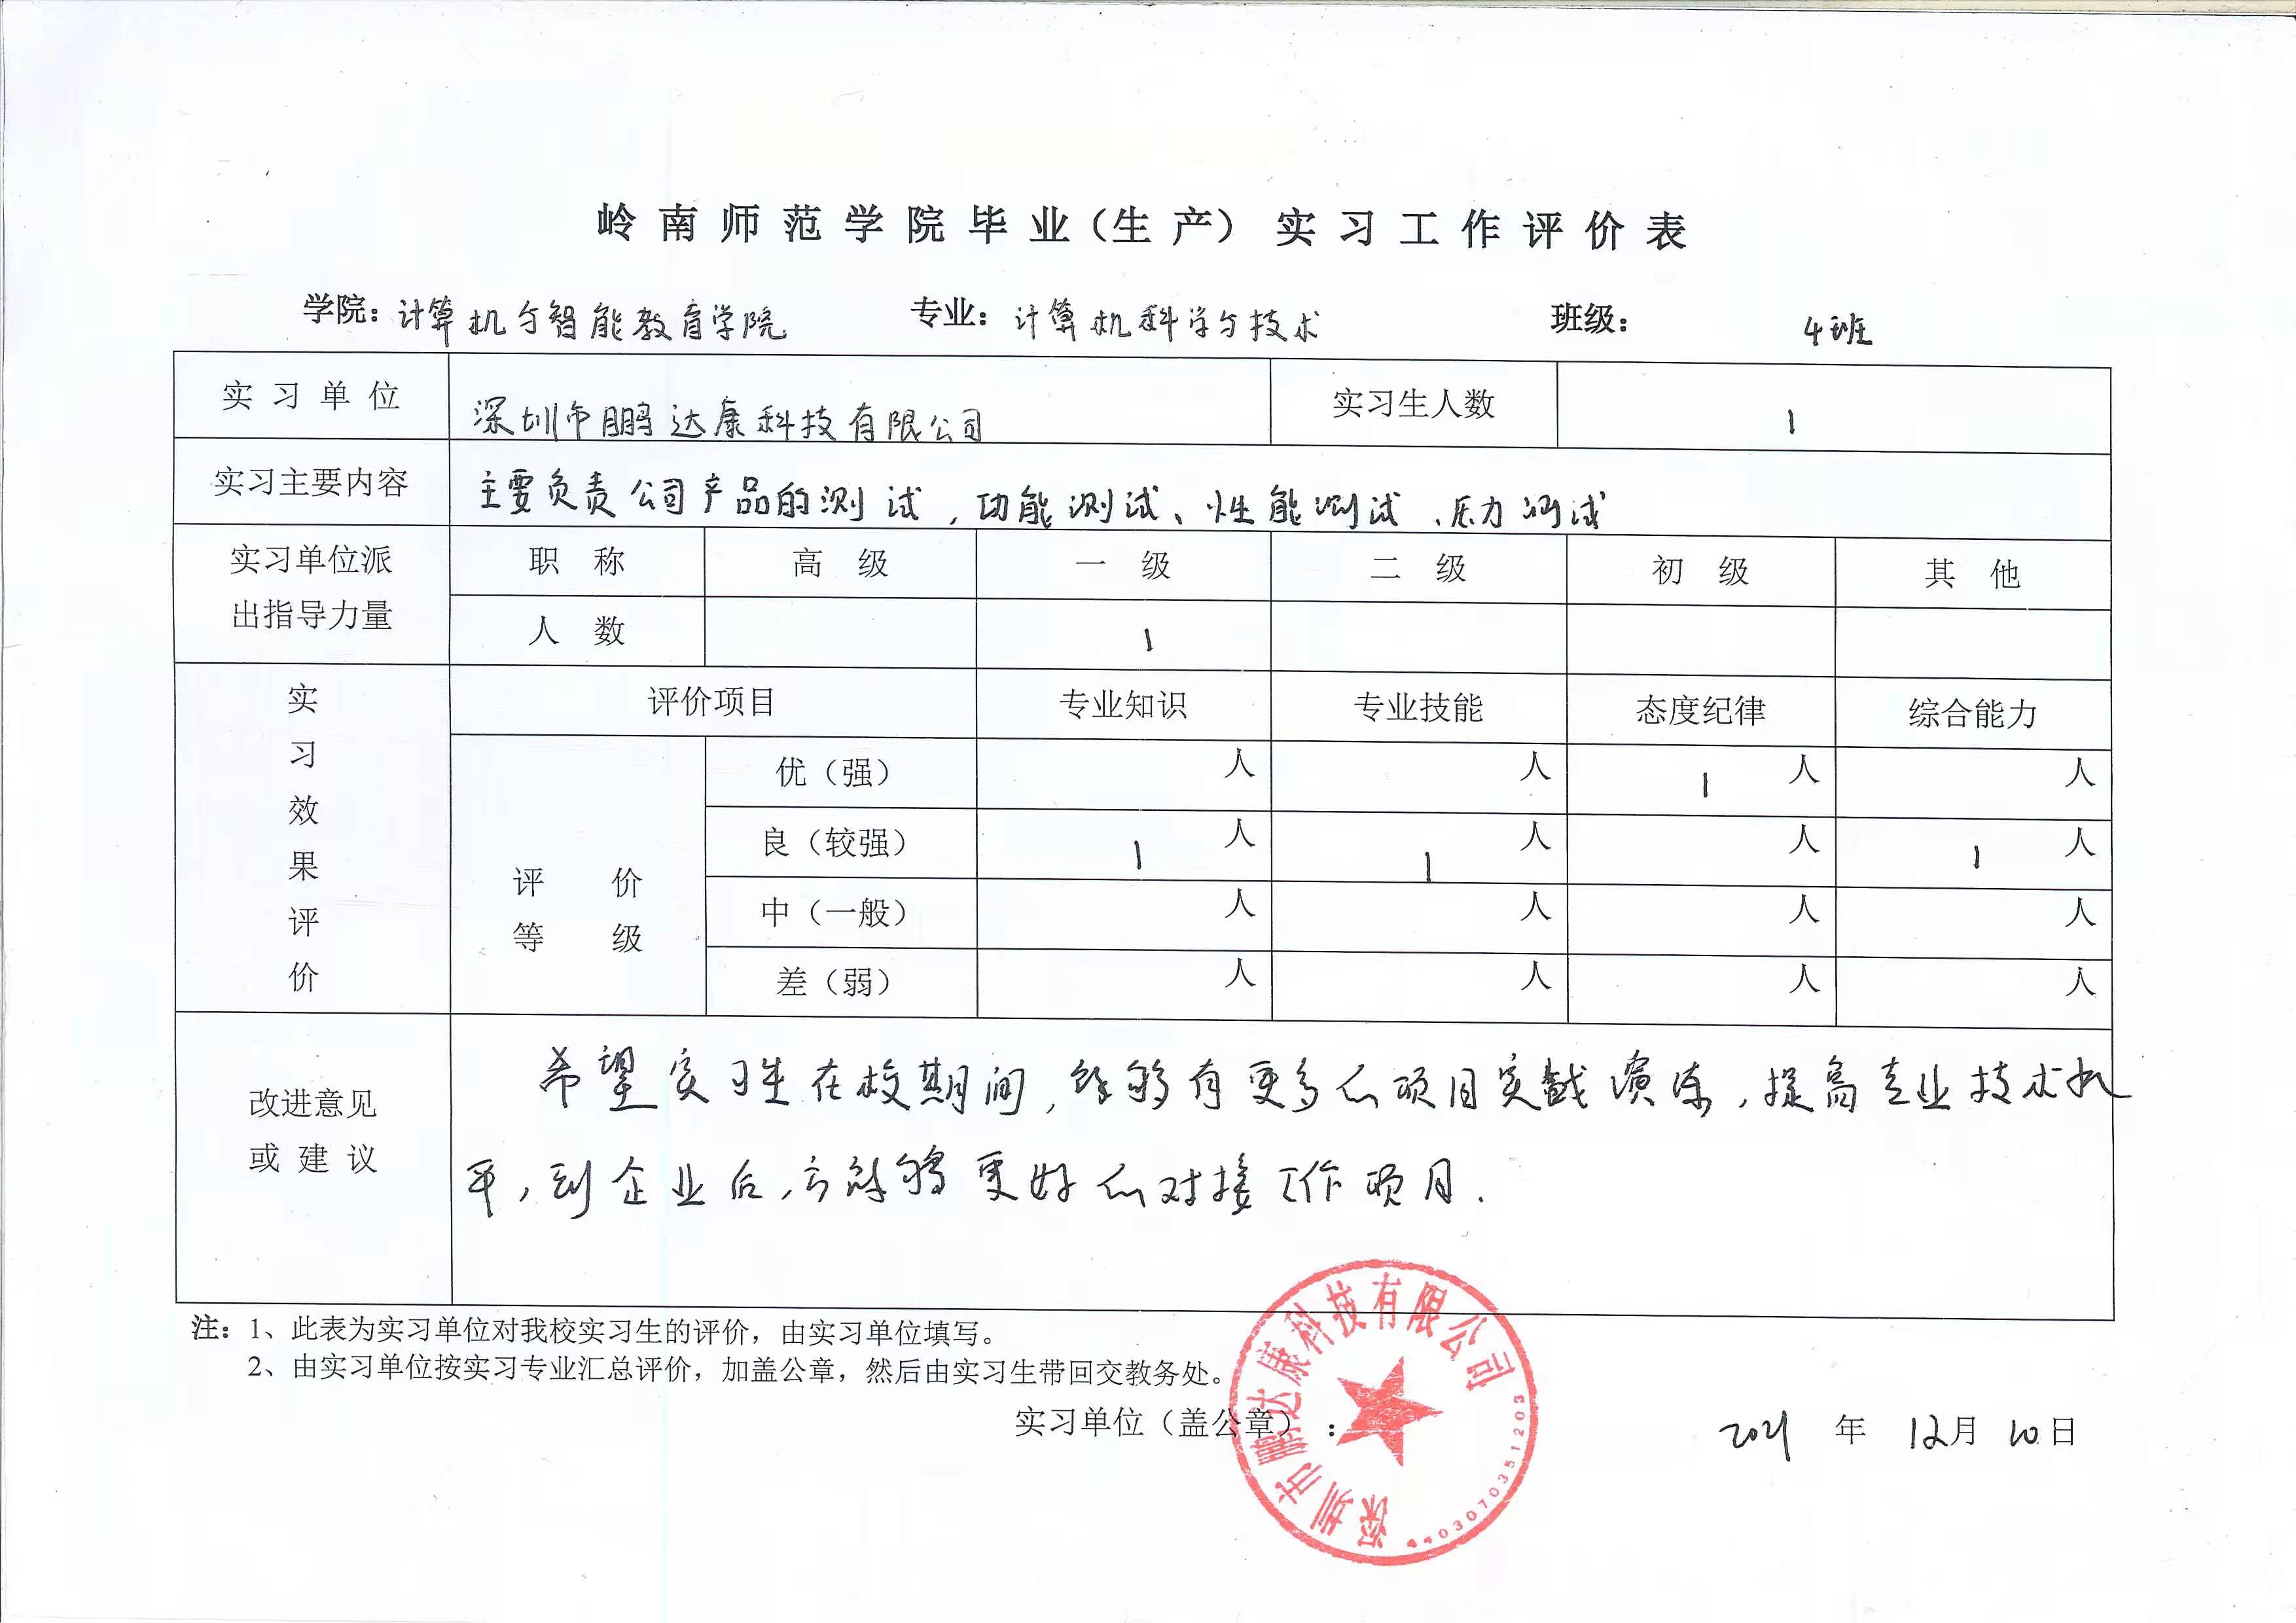 岭南师范学院毕业（生产）实习工作评价表
学院：计算机与智能教育学院 专业：计算机科学与技术 班级：4班
实习单位 深圳市鹏达康科技有限公司 实习生人数 1
实习主要内容 主要负责公司产品的测试，功能测试、性能测试、压力测试
实习单位派出指导力量 职称 高级 一级 二级 初级 其他
人数 1
实习效果评价 评价项目 专业知识 专业技能 态度纪律 综合能力
评价等级 优（强） 人 人 1人 人
良（较强） 1人 1人 人 1人
中（一般） 人 人 人 人
差（弱） 人 人 人 人
改进意见或建议
希望实习生在校期间，能够有更多的项目实战演练，提高专业技术水
平，到企业后，方能够更好的对接工作项目.
注：1、此表为实习单位对我校实习生的评价，由实习单位填写。
2、由实习单位按实习专业汇总评价，加盖公章，然后由实习生带回交教务处。
实习单位（盖公章）： 2021年12月10日
深圳市鹏达康科技有限公司
4403070351203